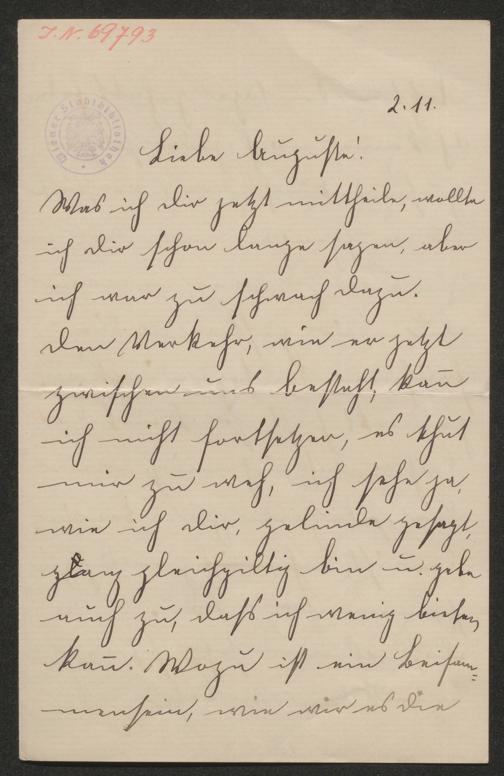 I.N. 69793
Wiener Stadtbibliothek
2. 11.
Liebe Auguste!
Was ich dir jetzt mittheile, wollte
ich dir schon lange sagen, aber
ich war zu schwach dazu.
Den Verkehr, wie er jetzt
zwischen uns besteht, kan̄
ich nicht fortsetzen, es thut
mir zu weh, ich sehe ja,
wie ich dir, gelinde gesagt,
ganz gleichgiltig bin u. gebe
auch zu, dass ich wenig bieten
kan̄. Wozu ist ein Beisam=
mensein, wie wir es die